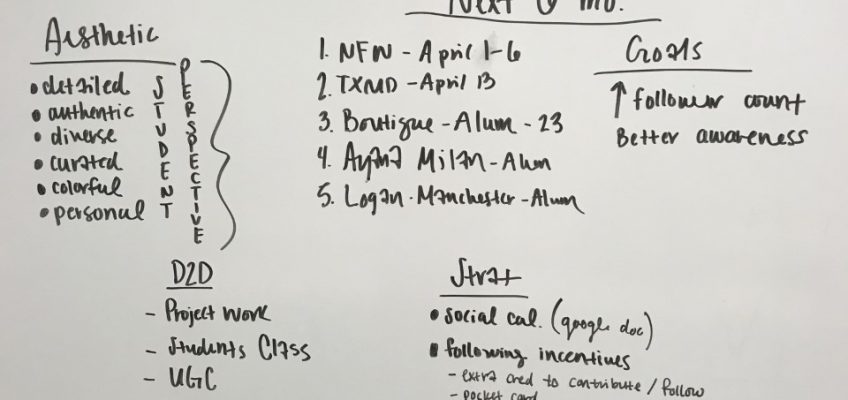 Next 6 mo.
Aesthetic
• detailed
• authentic
• diverse
• curated
• colorful
• personal
STUDENT
PERSPECTIVE
1. NFW - April 1-6
2. TXMD - April 13
3. Boutique - Alum - 23
4. Ayana Milan - Alum
5. Logan Manchester - Alum
Goals
↑ follower count
Better awareness
D2D
- Project Work
- Students Class
- UGC
Strat
• social cal. (google doc)
• following incentives
- extra cred to contribute / follow
- pocket card